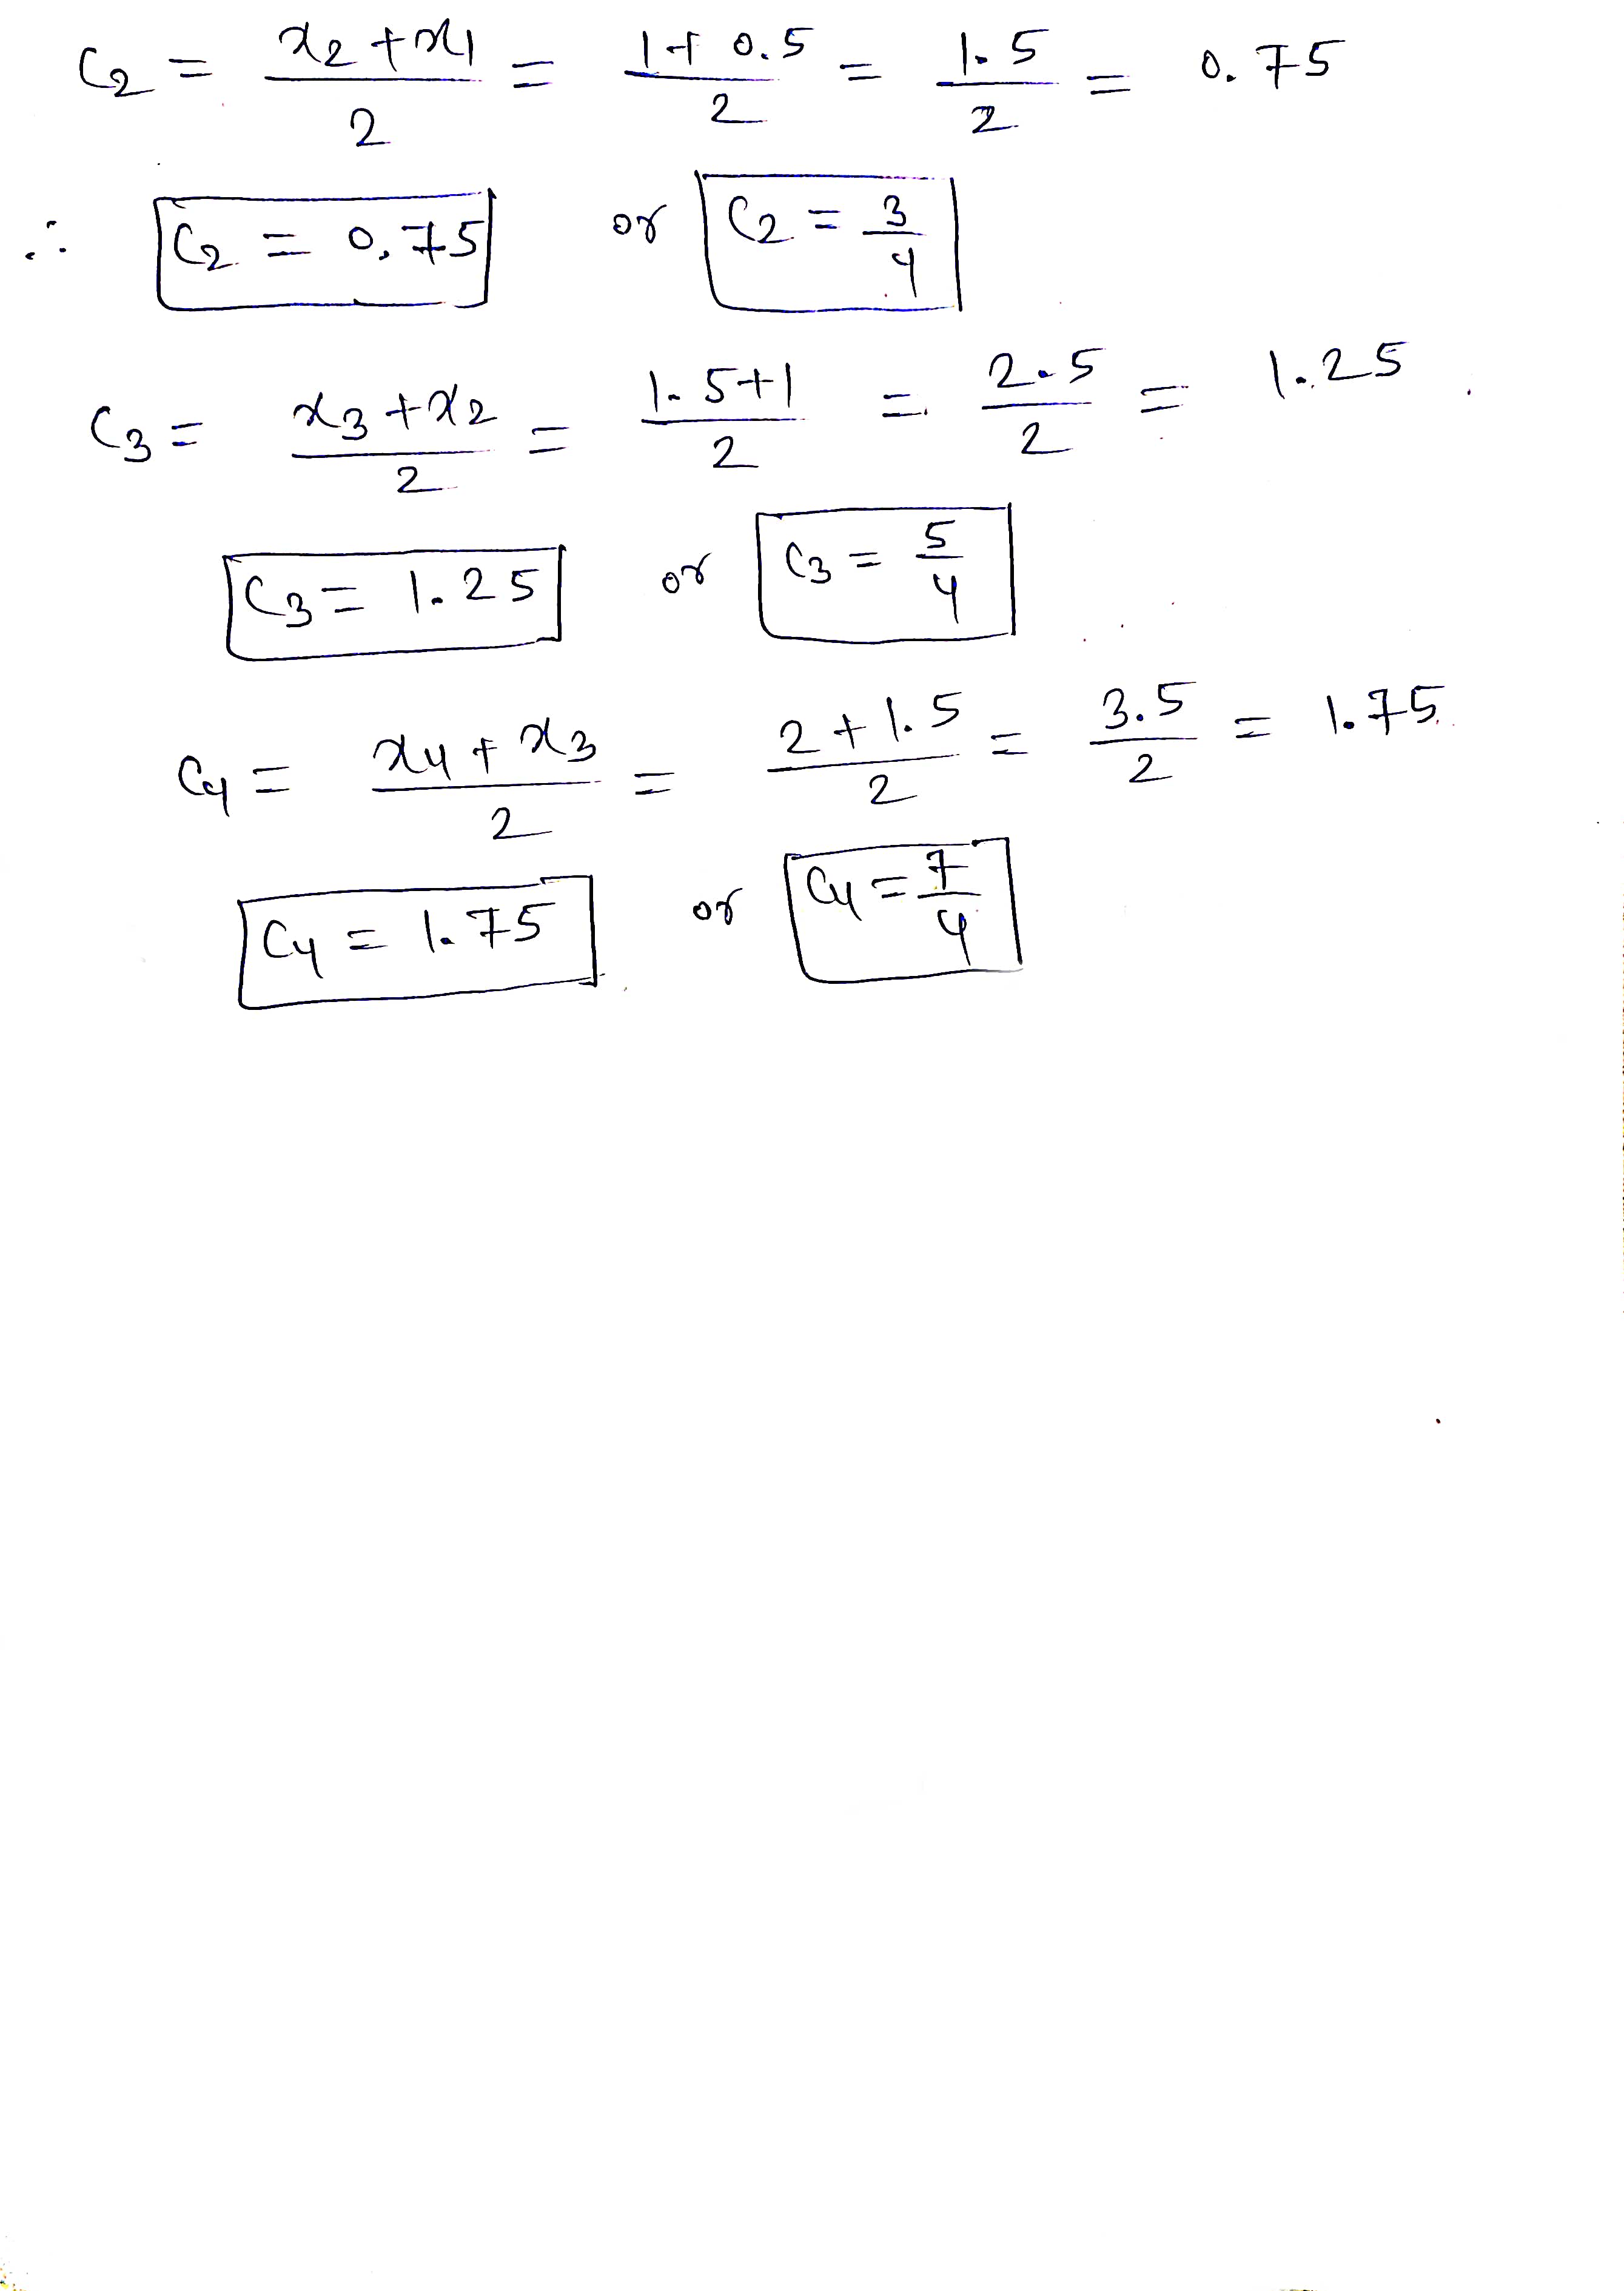 C2 = (x2 + x1)/2 = (1 + 0.5)/2 = 1.5/2 = 0.75
∴ C2 = 0.75 or C2 = 3/4
C3 = (x3 + x2)/2 = (1.5+1)/2 = 2.5/2 = 1.25
C3 = 1.25 or C3 = 5/4
C4 = (x4 + x3)/2 = (2 + 1.5)/2 = 3.5/2 = 1.75
C4 = 1.75 or C4 = 7/4